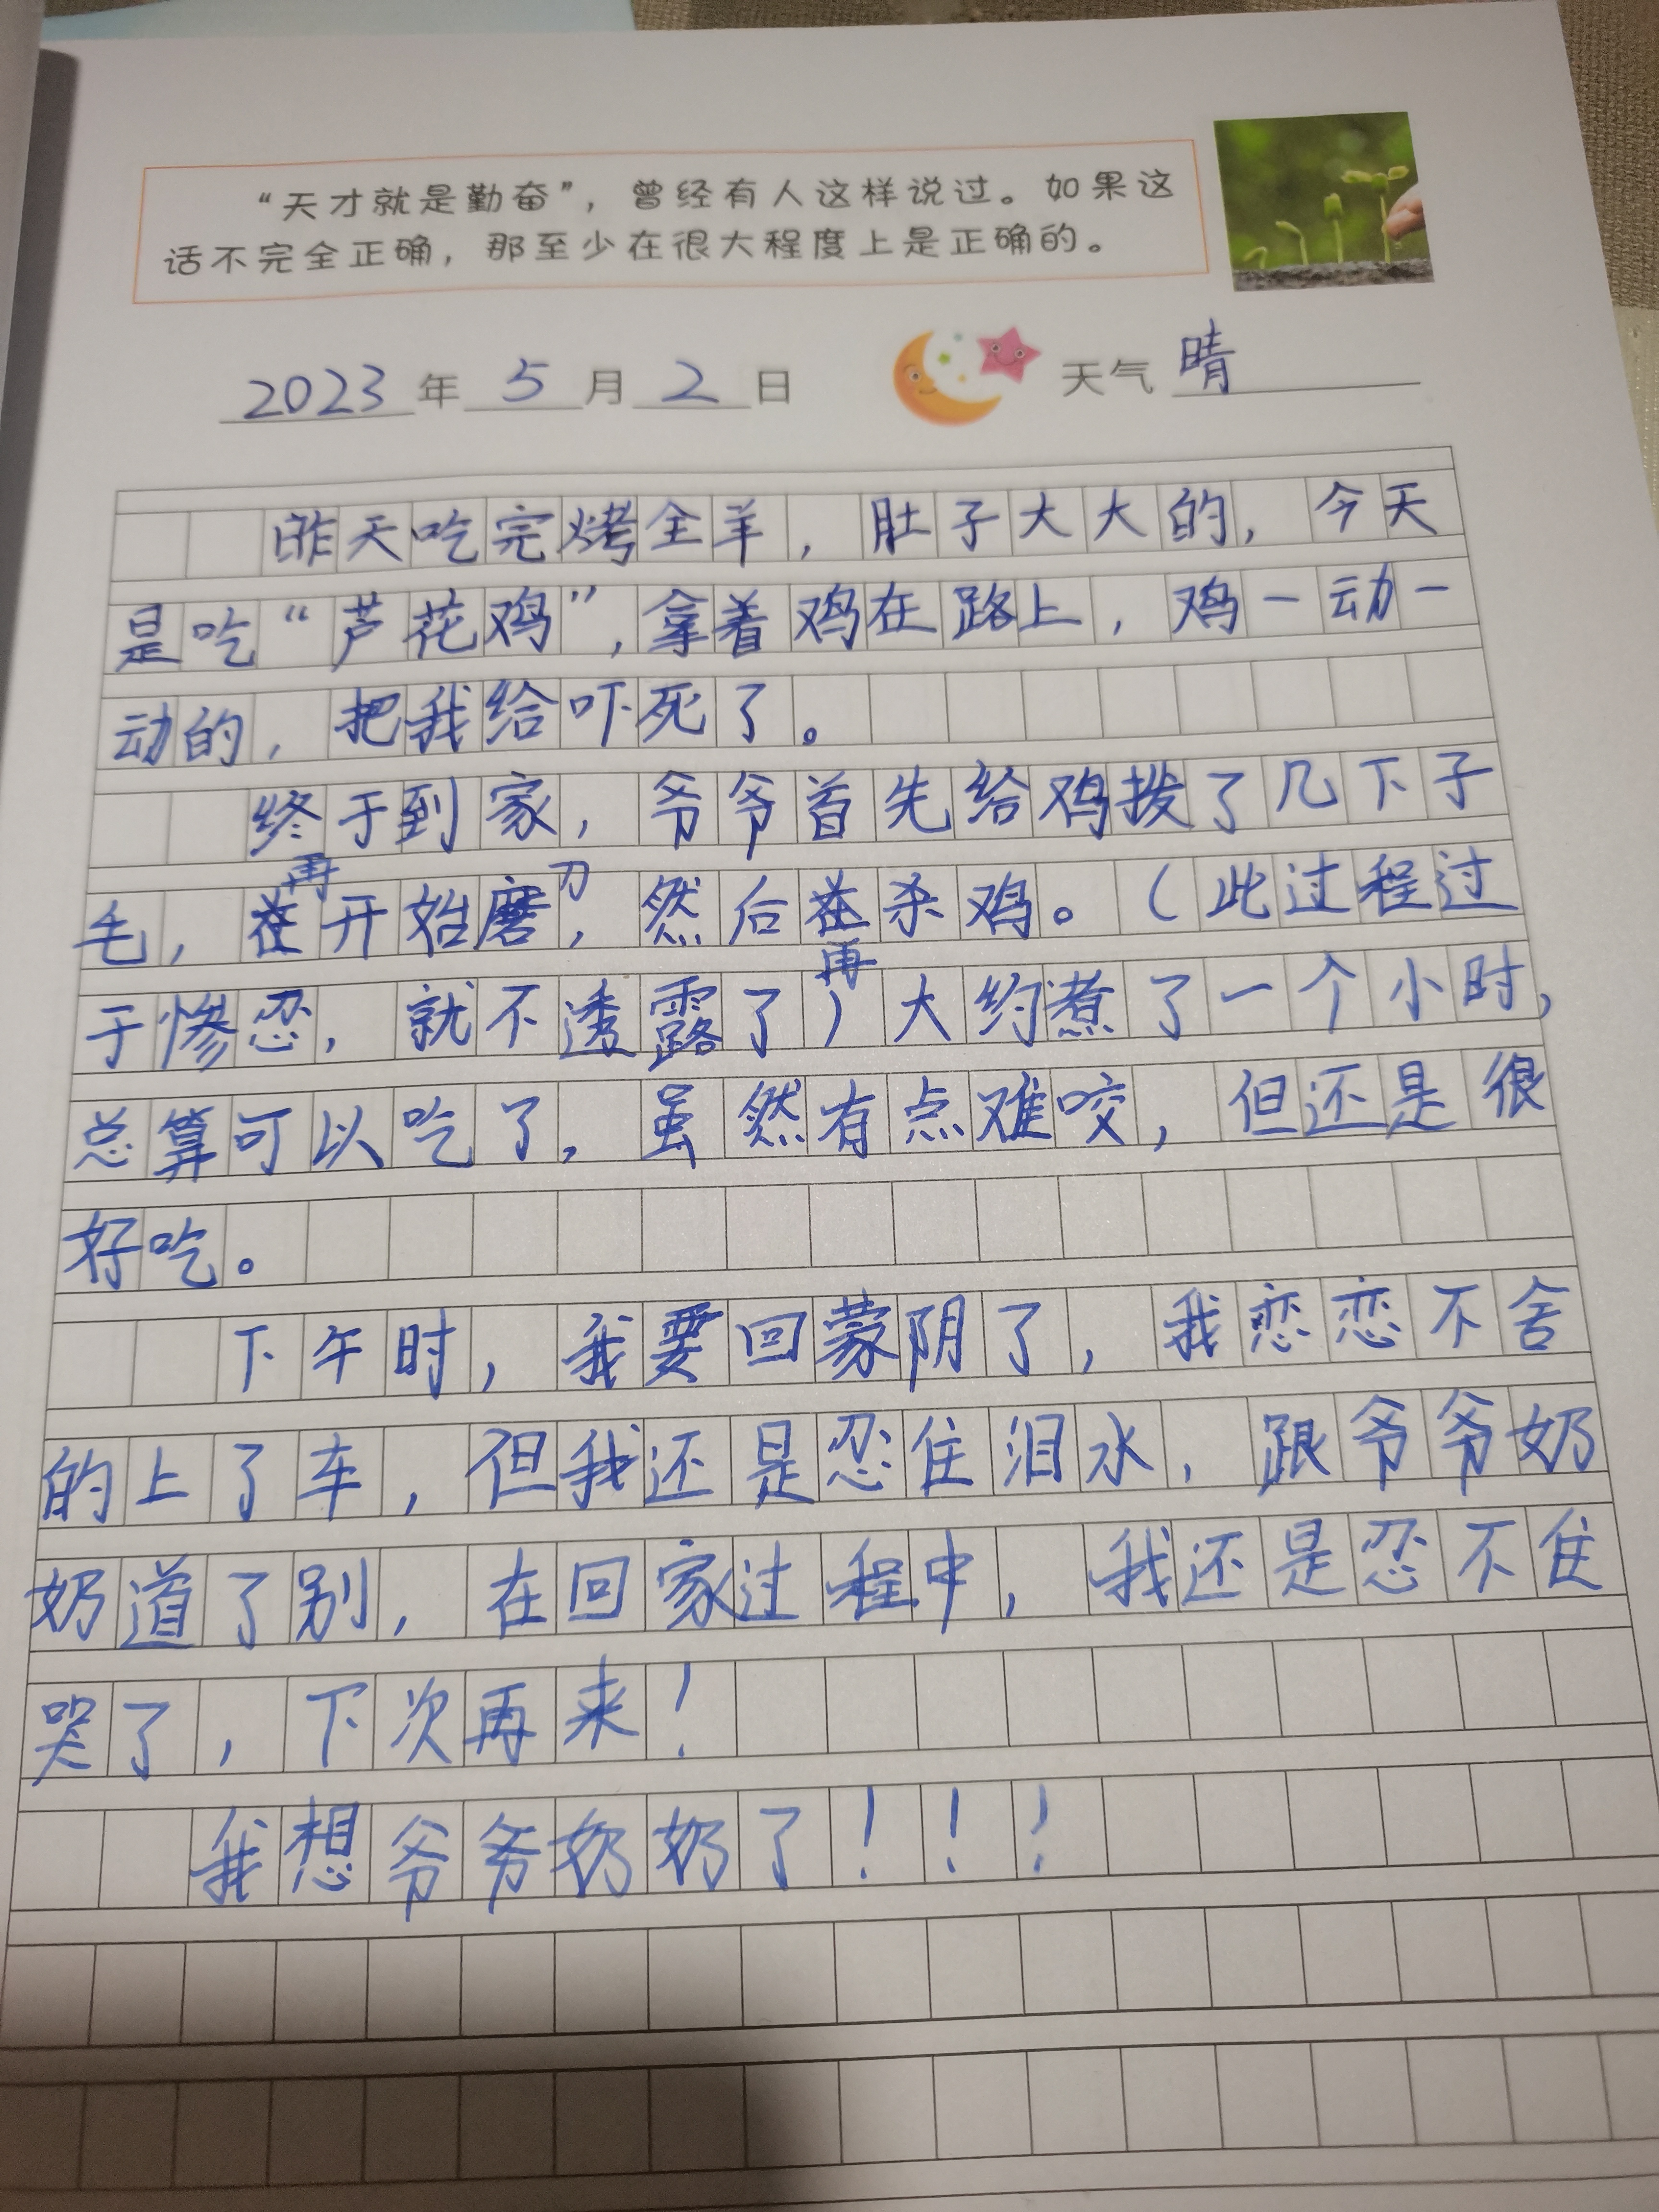 “天才就是勤奋”，曾经有人这样说过。如果这
话不完全正确，那至少在很大程度上是正确的。
2023年5月2日 天气晴
昨天吃完烤全羊，肚子大大的，今天
是吃“芦花鸡”，拿着鸡在路上，鸡一动一
动的，把我给吓死了。
终于到家，爷爷首先给鸡拨了几下子
毛，再开始磨刀，然后再杀鸡。（此过程过
于惨忍，就不透露了）大约煮了一个小时，
总算可以吃了，虽然有点难咬，但还是很
好吃。
下午时，我要回蒙阴了，我恋恋不舍
的上了车，但我还是忍住泪水，跟爷爷奶
奶道了别，在回家过程中，我还是忍不住
哭了，下次再来！
我想爷爷奶奶了！！！